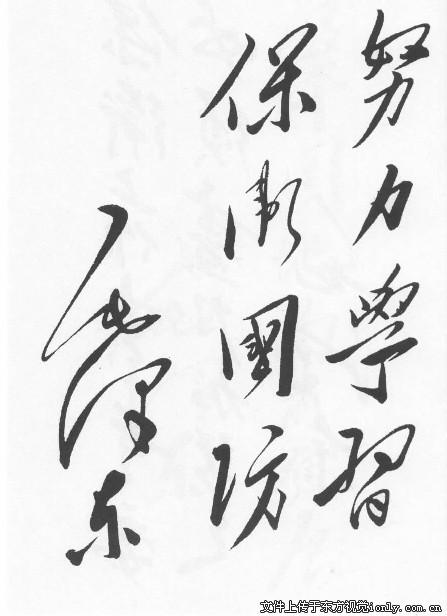 努力學習
保衛國防
毛澤东
文件上传于东方视觉ionly.com.cn